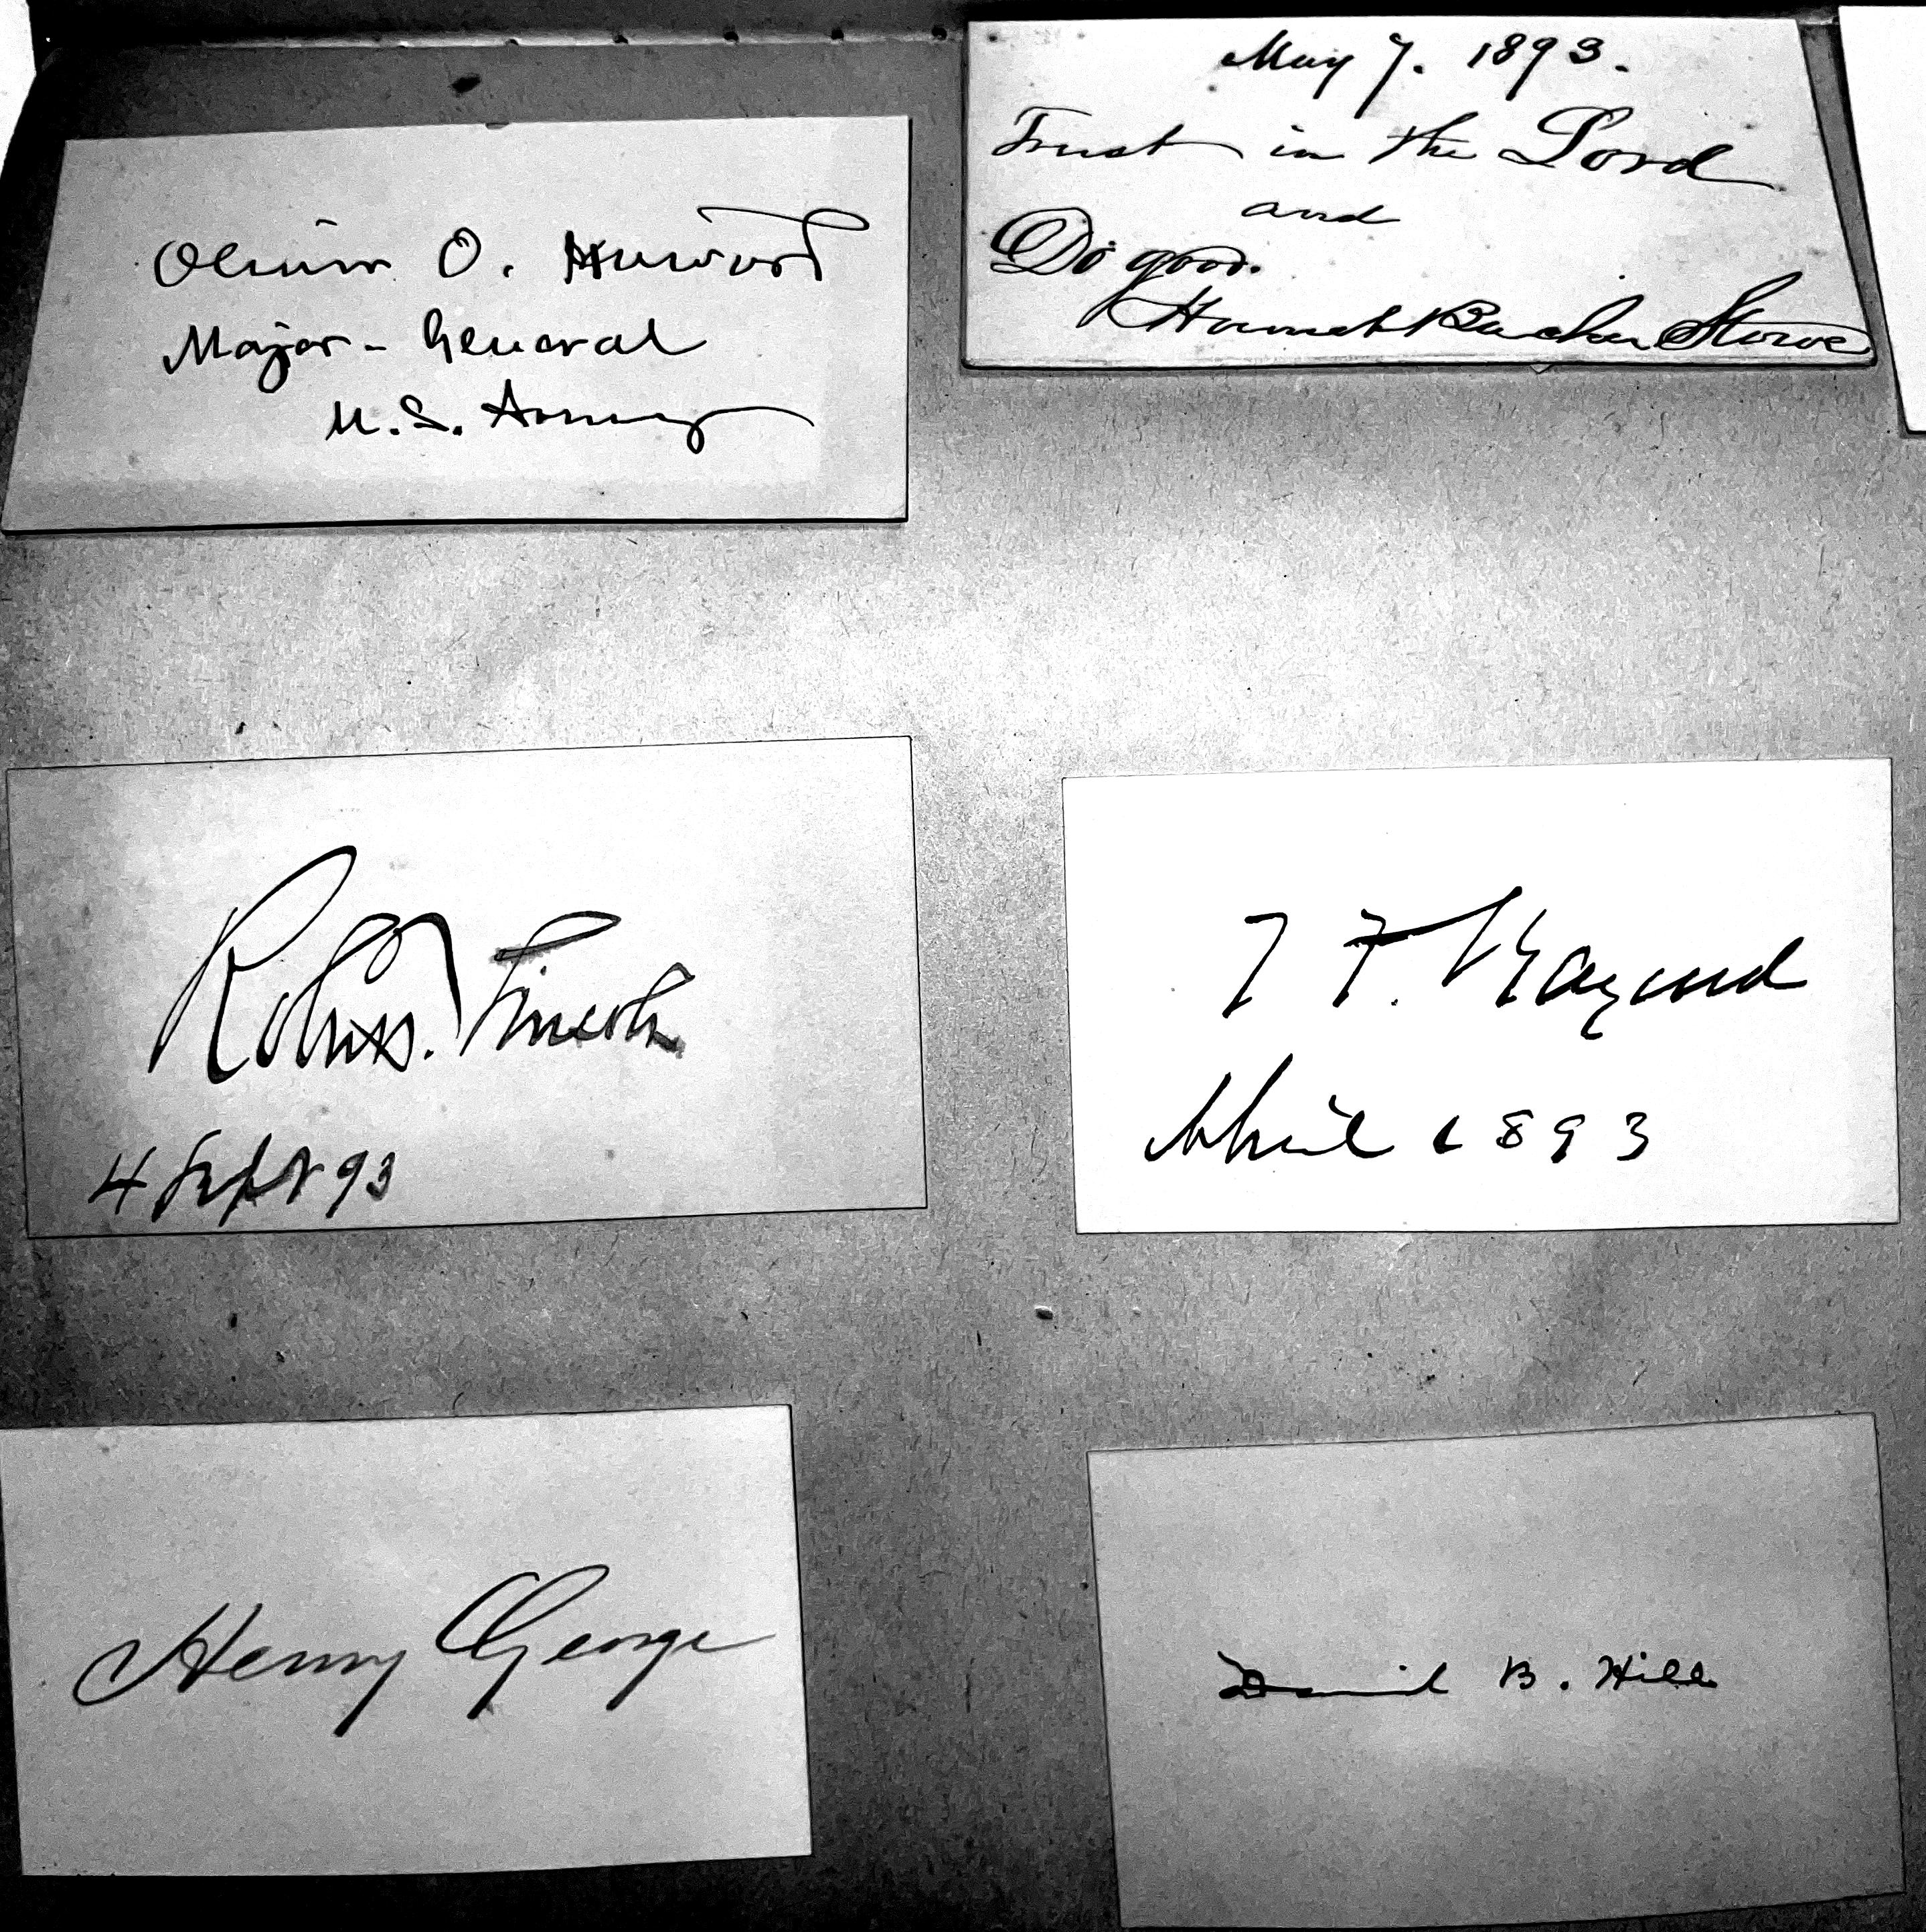 Oliver O. Howard
Major-General
U.S. Army
May 7. 1893.
Trust in the Lord
and
Do good.
Harriet Beecher Stowe
Robt. T. Lincoln
4 Sept 93
T F. Bayard
April 6 1893
Henry George
David B. Hill